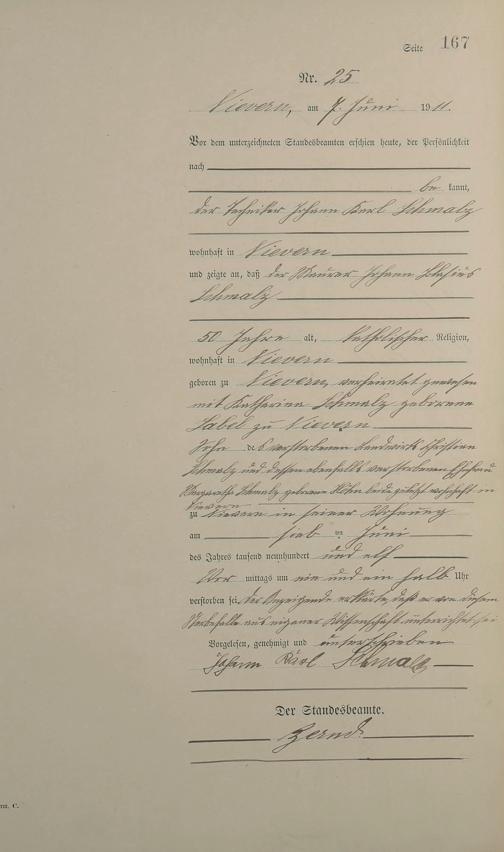 Seite 167
Nr. 25
Nievern, am 7. Juni 1911.
Vor dem unterzeichneten Standesbeamten erschien heute, der Persönlichkeit
nach
be kannt,
der Techniker Johann Karl Schmalz
wohnhaft in Nievern
und zeigte an, daß der Maurer Johann Blasius
Schmalz
50 Jahre alt, katholischer Religion,
wohnhaft in Nievern
geboren zu Nievern, verheiratet gewesen
mit Katharina Schmalz geborene
Sabel zu Nievern
Sohn des verstorbenen Landwirts Christian
Schmalz und dessen ebenfalls verstorbenen Ehefrau
Margaretha Schmalz geborene beide zuletzt wohnhaft in
Nievern
zu Nievern in seiner Wohnung
am sieb ten Juni
des Jahres tausend neunhundert und elf
Vor mittags um ein und ein halb Uhr
verstorben sei. Der Anzeigende erklärte, daß er von diesem
Sterbefalle aus eigener Wissenschaft unterrichtet sei
Vorgelesen, genehmigt und unterschrieben
Johann Karl Schmalz
Der Standesbeamte.
C.